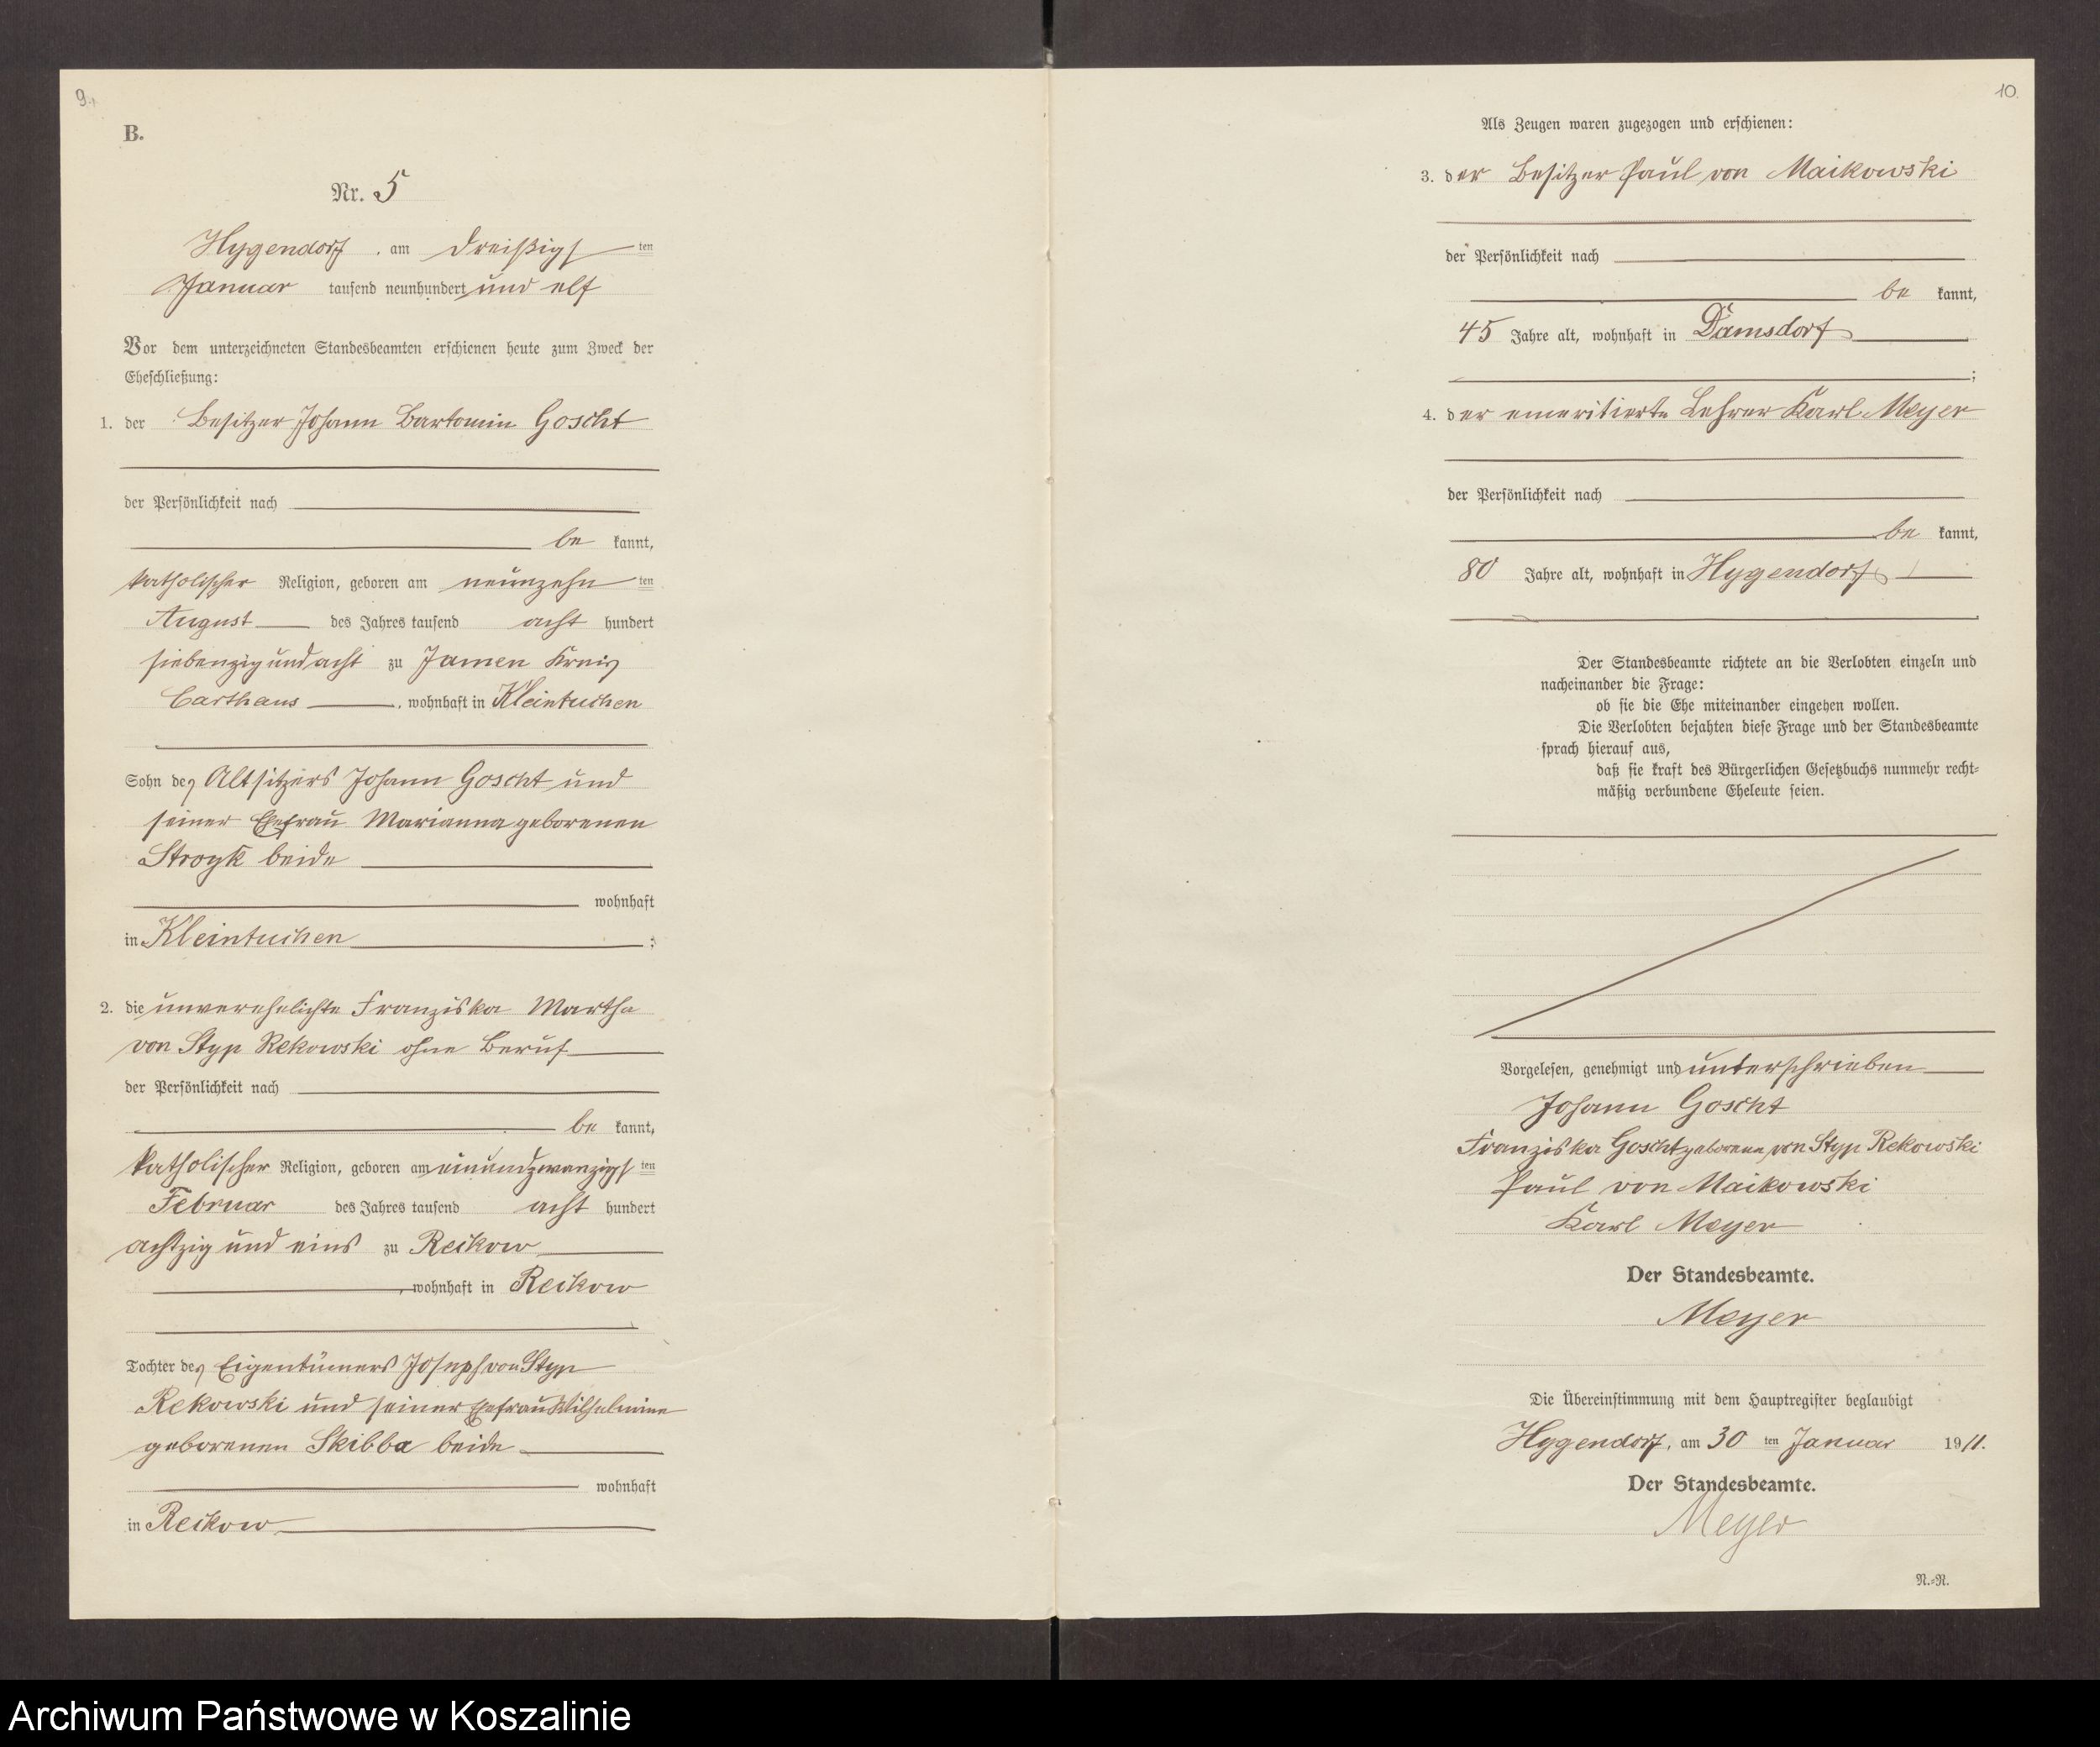 9.
B.
Nr. 5
Hygendorf, am dreißigsten
Januar tausend neunhundert und elf
Vor dem unterzeichneten Standesbeamten erschienen heute zum Zweck der
Eheschließung:
1. der Besitzer Johann Bartomin Goscht
der Persönlichkeit nach
be kannt,
katholischer Religion, geboren am neunzehn ten
August des Jahres tausend acht hundert
siebenzig und acht zu Jamen Kreis
Carthaus, wohnhaft in Kleintuchen
Sohn des Altsitzers Johann Goscht und
seiner Ehefrau Marianna geborenen
Stroyk beide
wohnhaft
in Kleintuchen;
2. die unverehelichte Franziska Martha
von Styp Rekowski ohne Beruf
der Persönlichkeit nach
be kannt,
katholischer Religion, geboren am einundzwanzigsten
Februar des Jahres tausend acht hundert
achtzig und eins zu Reckow
, wohnhaft in Reckow
Tochter des Eigentümers Joseph von Styp
Rekowski und seiner Ehefrau Wilhelmine
geborenen Skibba beide
wohnhaft
in Reckow
10.
Als Zeugen waren zugezogen und erschienen:
3. der Besitzer Paul von Maikowski
der Persönlichkeit nach
be kannt,
45 Jahre alt, wohnhaft in Damsdorf
;
4. der emeritierte Lehrer Karl Meyer
der Persönlichkeit nach
be kannt,
80 Jahre alt, wohnhaft in Hygendorf
Der Standesbeamte richtete an die Verlobten einzeln und
nacheinander die Frage:
ob sie die Ehe miteinander eingehen wollen.
Die Verlobten bejahten diese Frage und der Standesbeamte
sprach hierauf aus,
daß sie kraft des Bürgerlichen Gesetzbuchs nunmehr recht-
mäßig verbundene Eheleute seien.
Vorgelesen, genehmigt und unterschrieben
Johann Goscht
Franziska Goscht geborene von Styp Rekowski
Paul von Maikowski
Karl Meyer
Der Standesbeamte.
Meyer
Die Übereinstimmung mit dem Hauptregister beglaubigt
Hygendorf, am 30 ten Januar 1911.
Der Standesbeamte.
Meyer
N.-N.
Archiwum Państwowe w Koszalinie